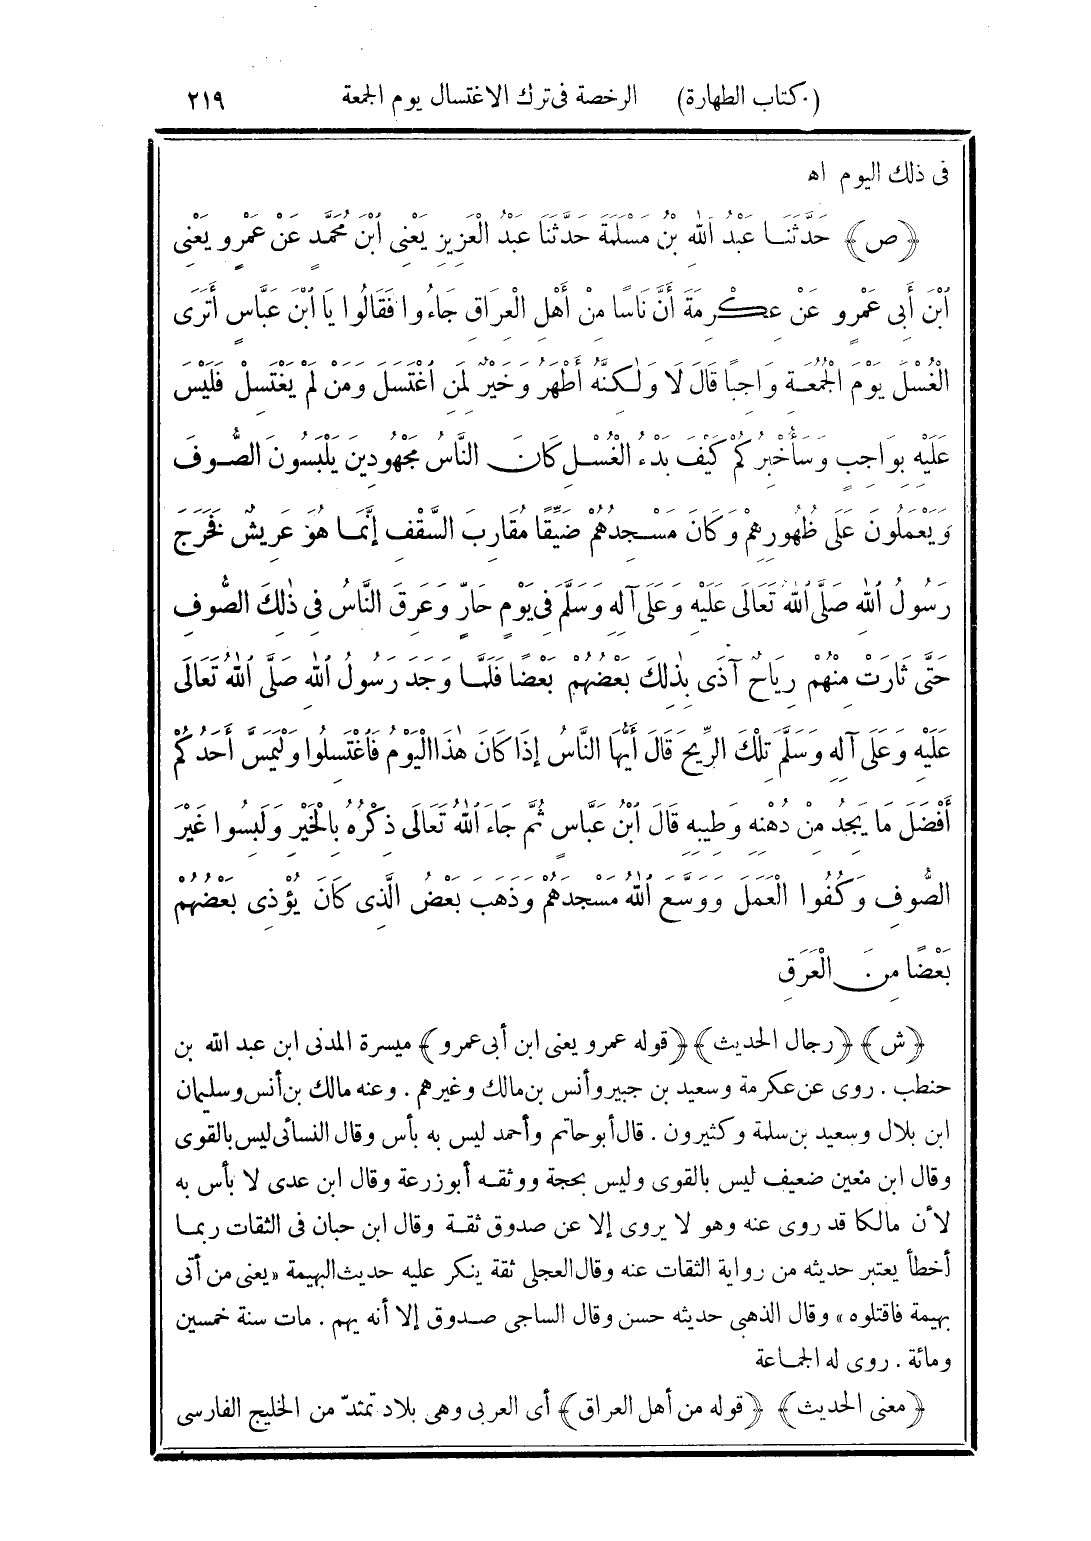 (كتاب الطهارة) الرخصة فى ترك الاغتسال يوم الجمعة ٢١٩
فى ذلك اليوم اه
﴿ص﴾ حَدَّثَنَا عَبْدُ ٱللهِ بْنُ مَسْلَمَةَ حَدَّثَنَا عَبْدُ الْعَزِيزِ يَعْنِى ٱبْنَ مُحَمَّدٍ عَنْ عَمْرٍو يَعْنِى
ٱبْنَ أَبِى عَمْرٍو عَنْ عِكْرِمَةَ أَنَّ نَاسًا مِنْ أَهْلِ الْعِرَاقِ جَاءُوا فَقَالُوا يَا ٱبْنَ عَبَّاسٍ أَتَرَى
الْغُسْلَ يَوْمَ الْجُمُعَةِ وَاجِبًا قَالَ لَا وَلٰكِنَّهُ أَطْهَرُ وَخَيْرٌ لِمَنِ ٱغْتَسَلَ وَمَنْ لَمْ يَغْتَسِلْ فَلَيْسَ
عَلَيْهِ بِوَاجِبٍ وَسَأُخْبِرُكُمْ كَيْفَ بَدْءُ الْغُسْلِ كَانَ النَّاسُ مَجْهُودِينَ يَلْبَسُونَ الصُّوفَ
وَيَعْمَلُونَ عَلَى ظُهُورِهِمْ وَكَانَ مَسْجِدُهُمْ ضَيِّقًا مُقَارِبَ السَّقْفِ إِنَّمَا هُوَ عَرِيشٌ فَخَرَجَ
رَسُولُ ٱللهِ صَلَّى ٱللهُ تَعَالَى عَلَيْهِ وَعَلَى آلِهِ وَسَلَّمَ فِى يَوْمٍ حَارٍّ وَعَرِقَ النَّاسُ فِى ذٰلِكَ الصُّوفِ
حَتَّى ثَارَتْ مِنْهُمْ رِيَاحٌ آذَى بِذٰلِكَ بَعْضُهُمْ بَعْضًا فَلَمَّا وَجَدَ رَسُولُ ٱللهِ صَلَّى ٱللهُ تَعَالَى
عَلَيْهِ وَعَلَى آلِهِ وَسَلَّمَ تِلْكَ الرِّيحَ قَالَ أَيُّهَا النَّاسُ إِذَا كَانَ هٰذَا الْيَوْمُ فَاغْتَسِلُوا وَلْيَمَسَّ أَحَدُكُمْ
أَفْضَلَ مَا يَجِدُ مِنْ دُهْنِهِ وَطِيبِهِ قَالَ ٱبْنُ عَبَّاسٍ ثُمَّ جَاءَ ٱللهُ تَعَالَى ذِكْرُهُ بِالْخَيْرِ وَلَبِسُوا غَيْرَ
الصُّوفِ وَكُفُوا الْعَمَلَ وَوَسَّعَ ٱللهُ مَسْجِدَهُمْ وَذَهَبَ بَعْضُ الَّذِى كَانَ يُؤْذِى بَعْضُهُمْ
بَعْضًا مِنَ الْعَرَقِ
﴿ش﴾ ﴿رجال الحديث﴾ ﴿قوله عمرو يعنى ابن أبى عمرو﴾ ميسرة المدنى ابن عبد الله بن
حنطب . روى عن عكرمة وسعيد بن جبير وأنس بن مالك وغيرهم . وعنه مالك بن أنس وسليمان
ابن بلال وسعيد بن سلمة وكثيرون . قال أبو حاتم وأحمد ليس به بأس وقال النسائى ليس بالقوى
وقال ابن معين ضعيف ليس بالقوى وليس بحجة ووثقه أبو زرعة وقال ابن عدى لا بأس به
لأن مالكا قد روى عنه وهو لا يروى إلا عن صدوق ثقة وقال ابن حبان فى الثقات ربما
أخطأ يعتبر حديثه من رواية الثقات عنه وقال العجلى ثقة ينكر عليه حديث البهيمة «يعنى من أتى
بهيمة فاقتلوه» وقال الذهبى حديثه حسن وقال الساجى صدوق إلا أنه يهم . مات سنة خمسين
ومائة . روى له الجماعة
﴿معنى الحديث﴾ ﴿قوله من أهل العراق﴾ أى العربى وهى بلاد تمتدّ من الخليج الفارسى